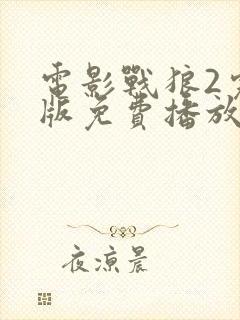 電影戰狼2完
版免費播放
夜涼晨